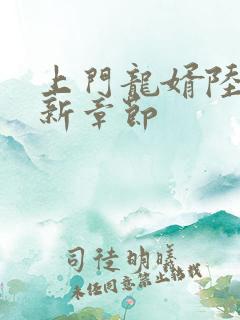 上門龍婿陸
新章節
司徒明曦
未經同意禁止轉載